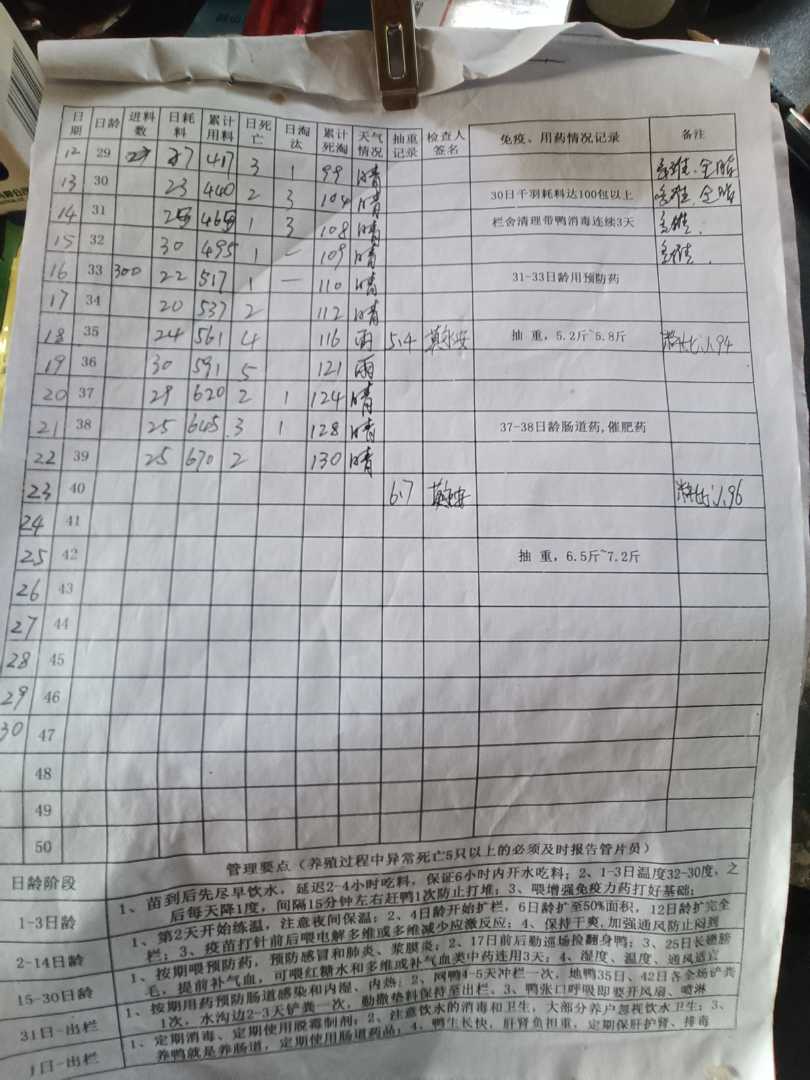 日期 日龄 进料数 日耗料 累计用料 日死亡 日淘汰 累计死淘 天气情况 抽重记录 检查人签名 免疫、用药情况记录 备注
12 29 27 417 3 1 99 晴
13 30 23 440 2 3 104 晴 30日千羽耗料达100包以上
14 31 25 465 1 3 108 晴 栏舍清理带鸭消毒连续3天
15 32 30 495 1 — 109 晴
16 33 300 22 517 1 — 110 晴 31-33日龄用预防药
17 34 20 537 2 112 晴
18 35 24 561 4 116 雨 5.4 抽 重，5.2斤~5.8斤 料比:1.94
19 36 30 591 5 121 雨
20 37 29 620 2 1 124 晴
21 38 25 645 3 1 128 晴 37-38日龄肠道药,催肥药
22 39 25 670 2 130 晴
23 40 6.7 料比:1.96
24 41
25 42 抽 重，6.5斤~7.2斤
26 43
27 44
28 45
29 46
30 47
48
49
50
日龄阶段 管理要点（养殖过程中异常死亡5只以上的必须及时报告管片员）
1-3日龄 1、苗到后先尽早饮水，延迟2-4小时吃料，保证6小时内开水吃料；2、1-3日温度32-30度，之
后每天降1度，间隔15分钟左右赶鸭1次防止打堆；3、喂增强免疫力药打好基础；
2-14日龄 1、第2天开始练温，注意夜间保温；2、4日龄开始扩栏，6日龄扩至50%面积，12日龄扩完全
栏；3、疫苗打针前后喂电解多维或多维减少应激反应；4、保持干爽,加强通风防止闷到
15-30日龄 1、按期喂预防药，预防感冒和肺炎、浆膜炎；2、17日前后勤巡场捡翻身鸭；3、25日长翅膀
毛，提前补气血，可喂红糖水和多维或补气血类中药连用3天；4、湿度、温度、通风适宜
31日-出栏 1、按期用药预防肠道感染和内湿、内热；2、网鸭4-5天冲栏一次，地鸭35日、42日各全场铲粪
1次，水沟边2-3天铲粪一次，勤撒垫料保持至出栏。3、鸭张口呼吸即要开风扇、喷淋
1日-出栏 1、定期消毒、定期使用脱霉制剂；2、注意饮水的消毒和卫生，大部分养户忽视饮水卫生；3、
养鸭就是养肠道，定期使用肠道药品；4、鸭生长快，肝肾负担重，定期保肝护肾、排毒